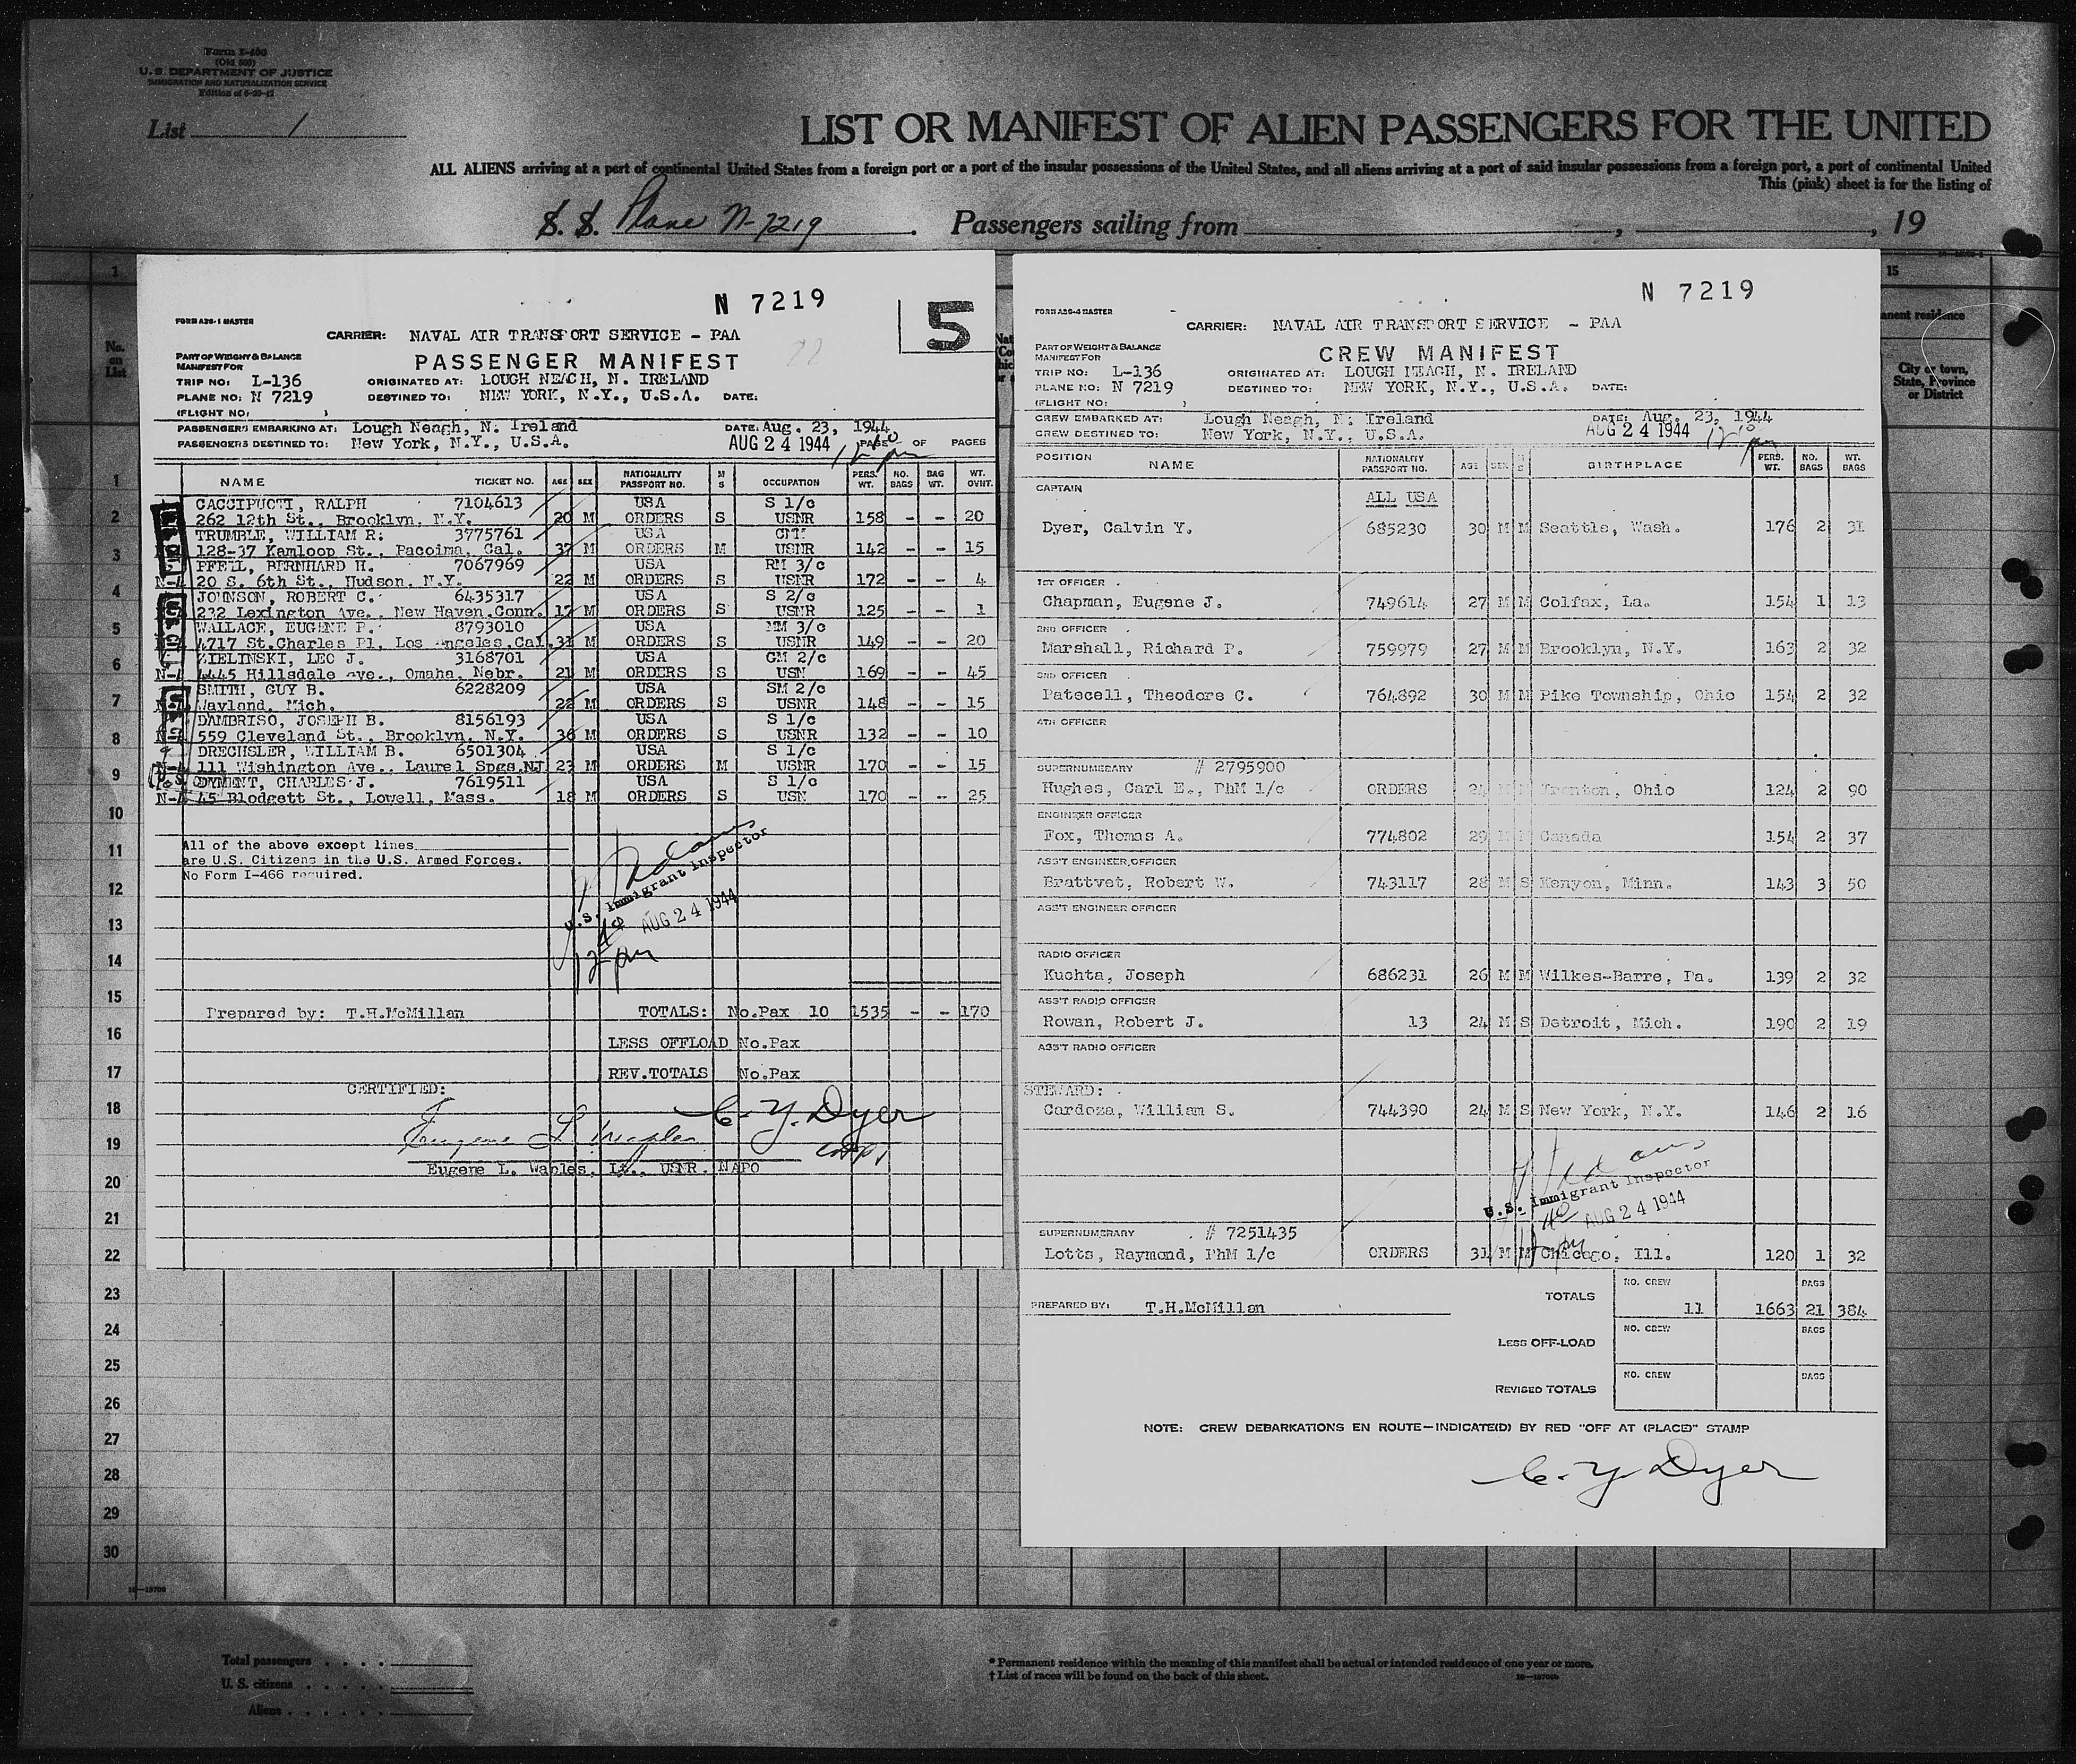 Form I-466
(Old 500)
U. S. DEPARTMENT OF JUSTICE
IMMIGRATION AND NATURALIZATION SERVICE
Edition of 6-20-41
List 1
LIST OR MANIFEST OF ALIEN PASSENGERS FOR THE UNITED
ALL ALIENS arriving at a port of continental United States from a foreign port or a port of the insular possessions of the United States, and all aliens arriving at a port of said insular possessions from a foreign port, a port of continental United
This (pink) sheet is for the listing of
S. S. Plane N-7219 . Passengers sailing from , , 19
N 7219
5
FORM A26-1 MASTER
CARRIER: NAVAL AIR TRANSPORT SERVICE - PAA
PART OF WEIGHT & BALANCE
MANIFEST FOR
PASSENGER MANIFEST
TRIP NO: L-136 ORIGINATED AT: LOUGH NEAGH, N. IRELAND
PLANE NO: N 7219 DESTINED TO: NEW YORK, N.Y., U.S.A. DATE:
(FLIGHT NO: )
PASSENGERS EMBARKING AT: Lough Neagh, N. Ireland DATE: Aug. 23, 1944
PASSENGERS DESTINED TO: New York, N.Y., U.S.A. AUG 24 1944 PAGE OF PAGES
NAME TICKET NO. AGE SEX NATIONALITY PASSPORT NO. M S OCCUPATION PERS. WT. NO. BAGS BAG WT. WT. OVNT.
CACCIPUCTI, RALPH 7104613 USA S 1/c
262 12th St., Brooklyn, N.Y. 20 M ORDERS S USNR 158 - - 20
TRUMBLE, WILLIAM R. 3775761 USA
128-37 Kamloop St., Pacoima, Cal. 37 M ORDERS M USNR 142 - - 15
PFEIL, BERNHARD H. 7067969 USA RM 3/c
N-L 20 S. 6th St., Hudson, N.Y. 22 M ORDERS S USNR 172 - - 4
JOHNSON, ROBERT C. 6435317 USA S 2/c
232 Lexington Ave., New Haven,Conn. 17 M ORDERS S USNR 125 - - 1
WALLACE, EUGENE P. 8793010 USA MM 3/c
4717 St.Charles Pl, Los Angeles,Cal. 31 M ORDERS S USNR 149 - - 20
ZIELINSKI, LEO J. 3168701 USA GM 2/c
N-L 4445 Hillsdale Ave., Omaha, Nebr. 21 M ORDERS S USN 169 - - 45
SMITH, GUY B. 6228209 USA SM 2/c
Wayland, Mich. 22 M ORDERS S USNR 148 - - 15
D'AMBRISO, JOSEPH B. 8156193 USA S 1/c
559 Cleveland St., Brooklyn, N.Y. 36 M ORDERS S USNR 132 - - 10
DRECHSLER, WILLIAM B. 6501304 USA S 1/c
N-L 111 Wishington Ave., Laurel Spgs,NJ 23 M ORDERS M USNR 170 - - 15
DYMENT, CHARLES J. 7619511 USA S 1/c
N-L 45 Blodgett St., Lowell, Mass. 18 M ORDERS S USN 170 - - 25
All of the above except lines
are U.S. Citizens in the U.S. Armed Forces.
No Form I-466 required.
U.S. Immigrant Inspector
AUG 24 1944
Prepared by: T.H.McMillan TOTALS: No.Pax 10 1535 - - 170
LESS OFFLOAD No.Pax
REV.TOTALS No.Pax
CERTIFIED:
C. Y. Dyer
Eugene L. Waples, Lt., USNR. NAPO
N 7219
FORM A26-4 MASTER
CARRIER: NAVAL AIR TRANSPORT SERVICE - PAA
PART OF WEIGHT & BALANCE
MANIFEST FOR
CREW MANIFEST
TRIP NO: L-136 ORIGINATED AT: LOUGH NEAGH, N. IRELAND
PLANE NO: N 7219 DESTINED TO: NEW YORK, N.Y., U.S.A. DATE:
(FLIGHT NO: )
CREW EMBARKED AT: Lough Neagh, N. Ireland DATE: Aug. 23, 1944
CREW DESTINED TO: New York, N.Y., U.S.A. AUG 24 1944
POSITION NAME NATIONALITY PASSPORT NO. AGE SEX M S BIRTHPLACE PERS. WT. NO. BAGS WT. BAGS
CAPTAIN ALL USA
Dyer, Calvin Y. 685230 30 M M Seattle, Wash. 176 2 31
1ST OFFICER
Chapman, Eugene J. 749614 27 M M Colfax, La. 154 1 13
2ND OFFICER
Marshall, Richard P. 759979 27 M M Brooklyn, N.Y. 163 2 32
3RD OFFICER
Patecell, Theodore C. 764892 30 M M Pike Township, Ohio 154 2 32
4TH OFFICER
SUPERNUMERARY # 2795900
Hughes, Carl E., PhM 1/c ORDERS 24 M M Trenton, Ohio 124 2 90
ENGINEER OFFICER
Fox, Thomas A. 774802 29 M M Canada 154 2 37
ASS'T ENGINEER OFFICER
Brattvet, Robert W. 743117 28 M S Kenyon, Minn. 143 3 50
ASS'T ENGINEER OFFICER
RADIO OFFICER
Kuchta, Joseph 686231 26 M M Wilkes-Barre, Pa. 139 2 32
ASS'T RADIO OFFICER
Rowan, Robert J. 13 24 M S Detroit, Mich. 190 2 19
ASS'T RADIO OFFICER
STEWARD:
Cardoza, William S. 744390 24 M S New York, N.Y. 146 2 16
U.S. Immigrant Inspector
AUG 24 1944
SUPERNUMERARY # 7251435
Lotts, Raymond, PhM 1/c ORDERS 31 M M Chicago, Ill. 120 1 32
TOTALS NO. CREW 11 1663 BAGS 21 384
PREPARED BY: T.H.McMillan
LESS OFF-LOAD NO. CREW BAGS
REVISED TOTALS NO. CREW BAGS
NOTE: CREW DEBARKATIONS EN ROUTE—INDICATE(D) BY RED "OFF AT (PLACE)" STAMP
C. Y. Dyer
15
City or town,
State, Province
or District
No.
on
List
1
1
2
3
4
5
6
7
8
9
10
11
12
13
14
15
16
17
18
19
20
21
22
23
24
25
26
27
28
29
30
Total passengers
U. S. citizens
Aliens
* Permanent residence within the meaning of this manifest shall be actual or intended residence of one year or more.
† List of races will be found on the back of this sheet.